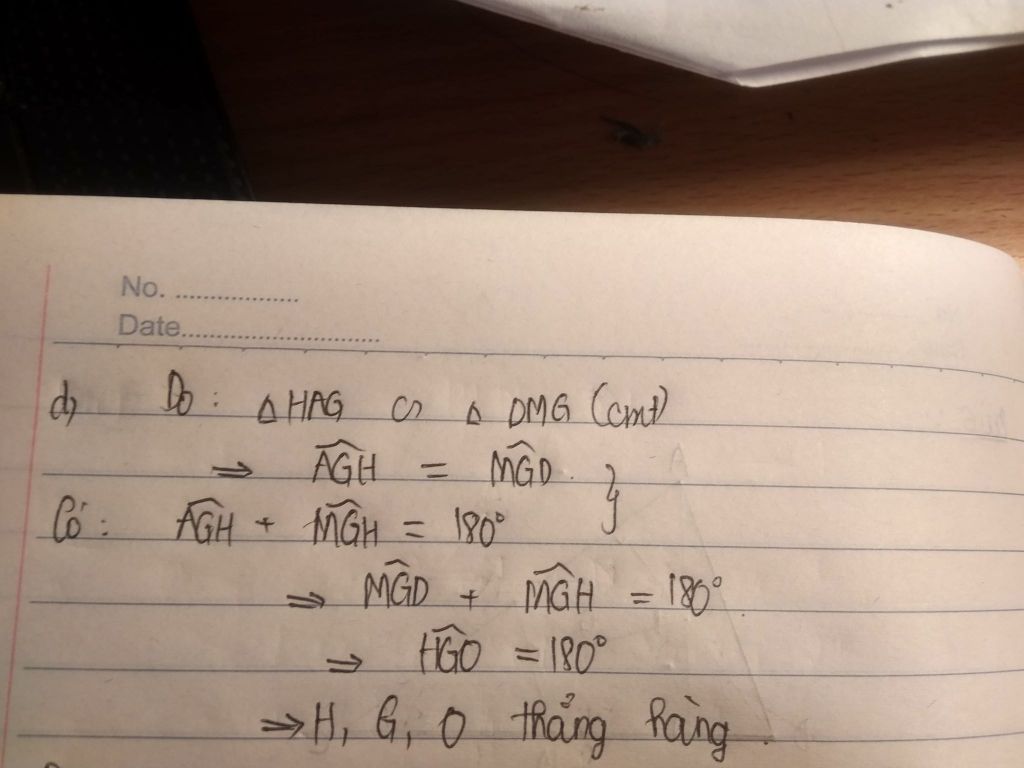 No. ..................
Date.............................
d, Do : △ HAG ∽ △ OMG (cmt)
⇒ \widehat{AGH} = \widehat{MGO} . }
Có : \widehat{AGH} + \widehat{MGH} = 180°
⇒ \widehat{MGO} + \widehat{MGH} = 180°
⇒ \widehat{HGO} = 180°
⇒ H, G, O thẳng hàng .